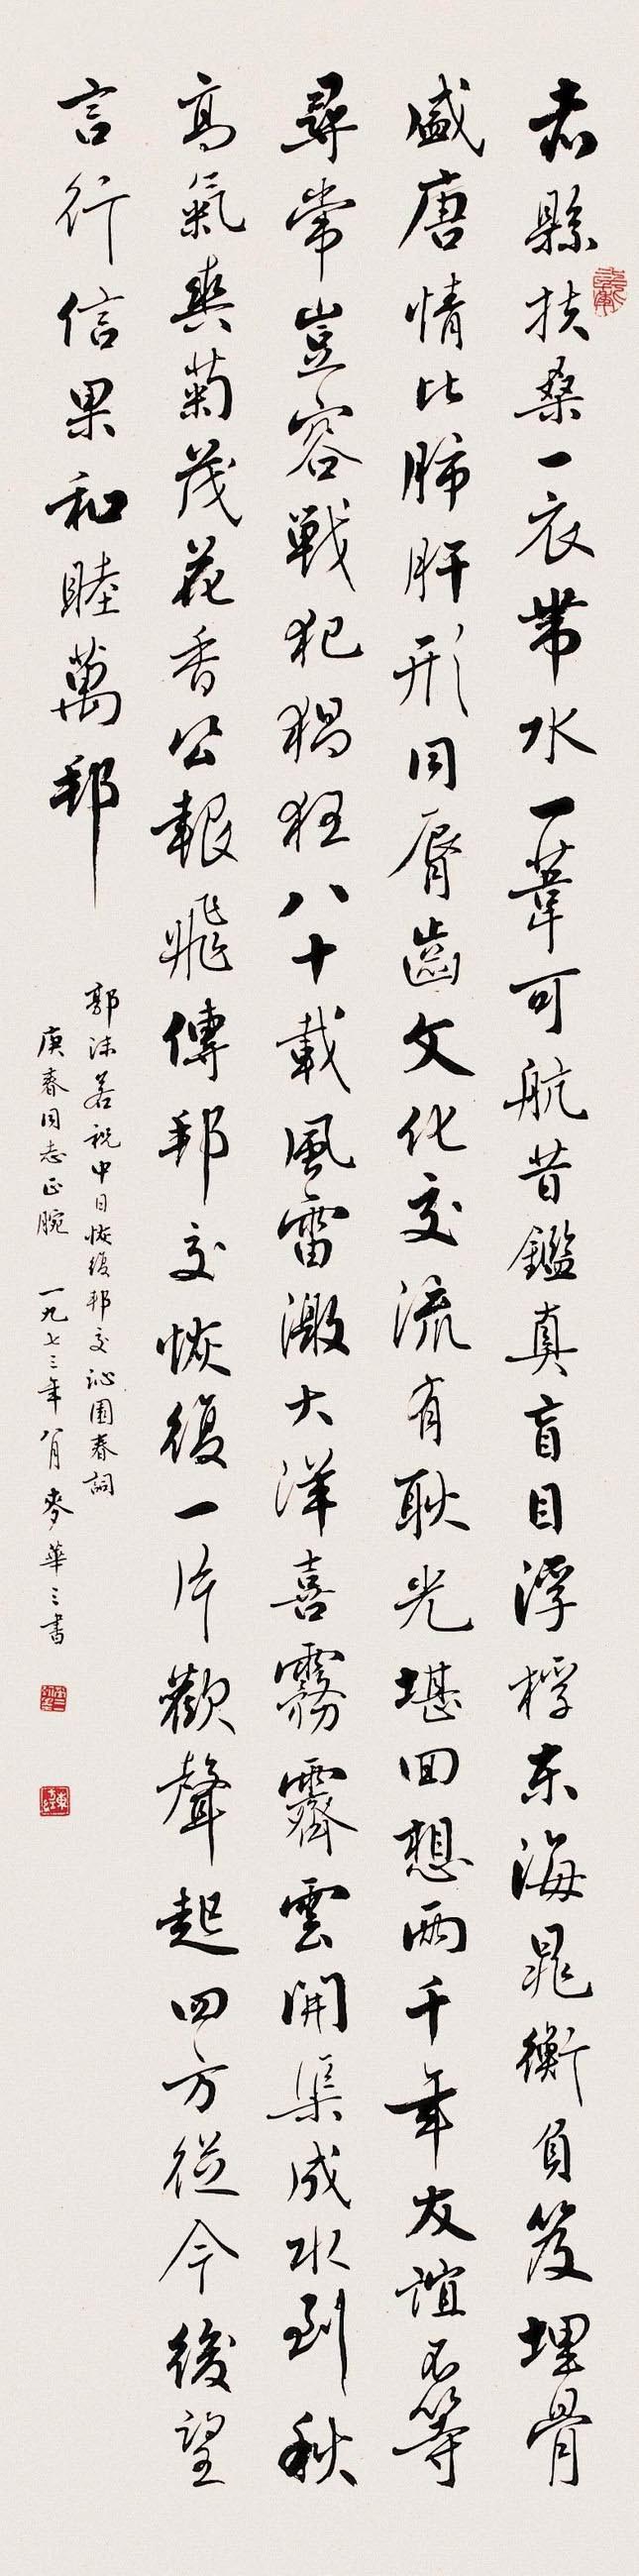 赤縣扶桑一衣帶水一葦可航昔鑑真盲目浮桴東海晁衡負笈埋骨
盛唐情比肺肝形同脣齒文化交流有耿光堪回想兩千年友誼不等
尋常豈容戰犯猖狂八十載風雷激大洋喜霧霽雲開渠成水到秋
高氣爽菊茂花香公報飛傳邦交恢復一片歡聲起四方從今後望
言行信果和睦萬邦
郭沫若祝中日恢復邦交沁園春詞
庚春同志正腕 一九七三年八月 麥華三書